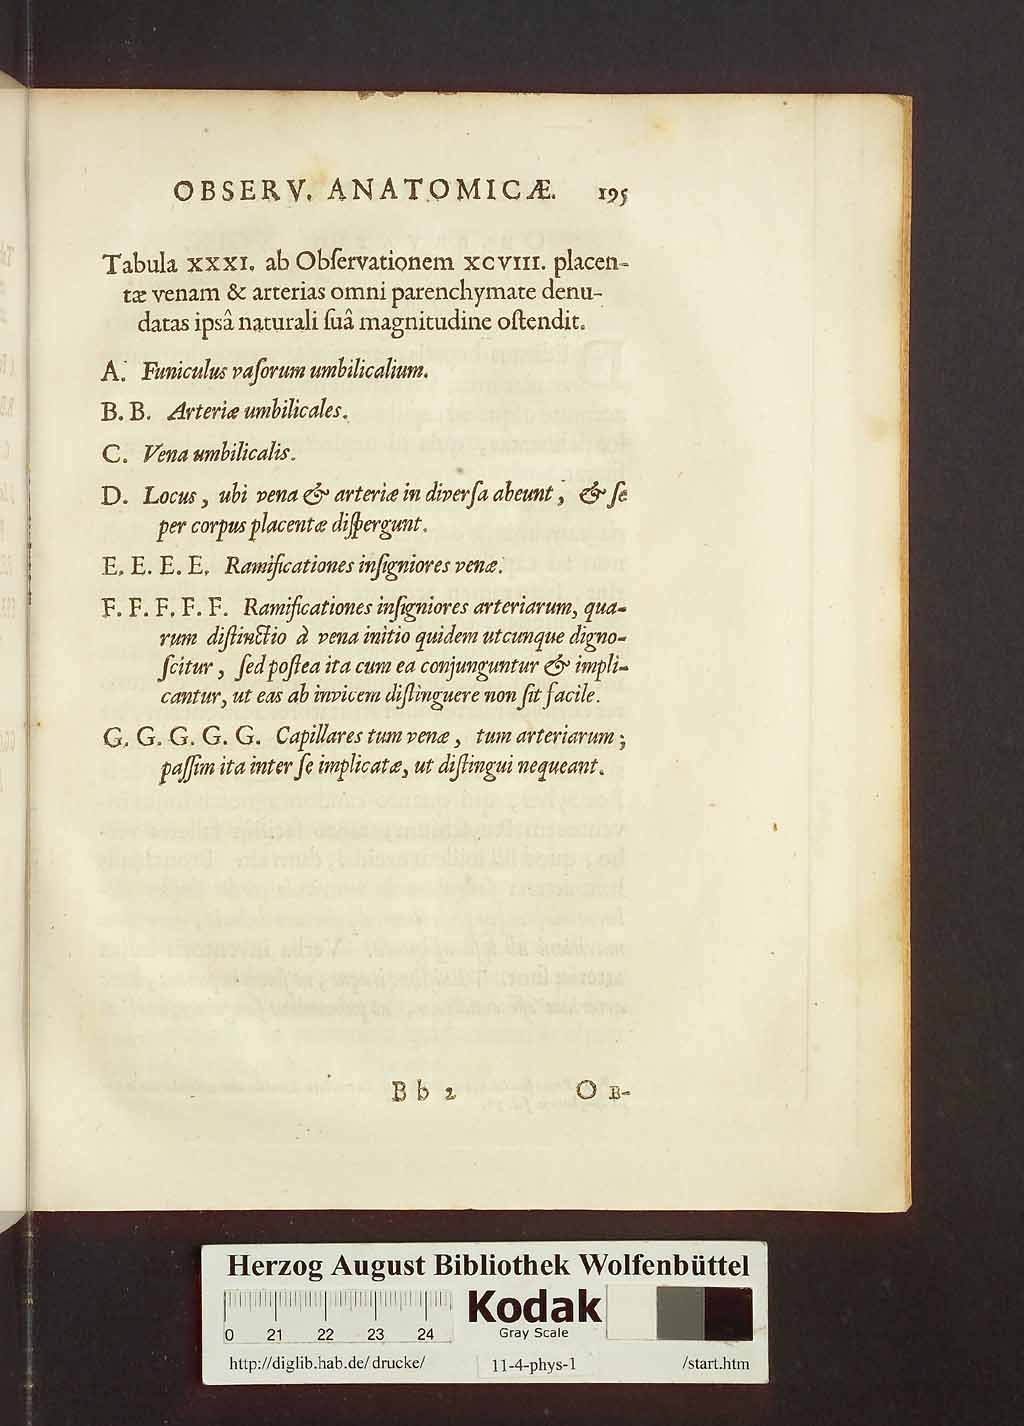 OBSERV. ANATOMICÆ. 195
Tabula XXXI. ab Obſervationem XCVIII. placen-
tæ venam & arterias omni parenchymate denu-
datas ipsâ naturali ſuâ magnitudine oſtendit.
A. Funiculus vaſorum umbilicalium.
B. B. Arteriæ umbilicales.
C. Vena umbilicalis.
D. Locus, ubi vena & arteriæ in diverſa abeunt, & ſe
per corpus placentæ diſpergunt.
E. E. E. E. Ramificationes inſigniores venæ.
F. F. F. F. F. Ramificationes inſigniores arteriarum, qua-
rum diſtinctio à vena initio quidem utcunque digno-
ſcitur, ſed poſtea ita cum ea conjunguntur & impli-
cantur, ut eas ab invicem diſtinguere non ſit facile.
G. G. G. G. G. Capillares tum venæ, tum arteriarum;
paſſim ita inter ſe implicatæ, ut diſtingui nequeant.
Bb 2 OB-
Herzog August Bibliothek Wolfenbüttel
0 21 22 23 24
Kodak
Gray Scale
http://diglib.hab.de/drucke/ 11-4-phys-1 /start.htm